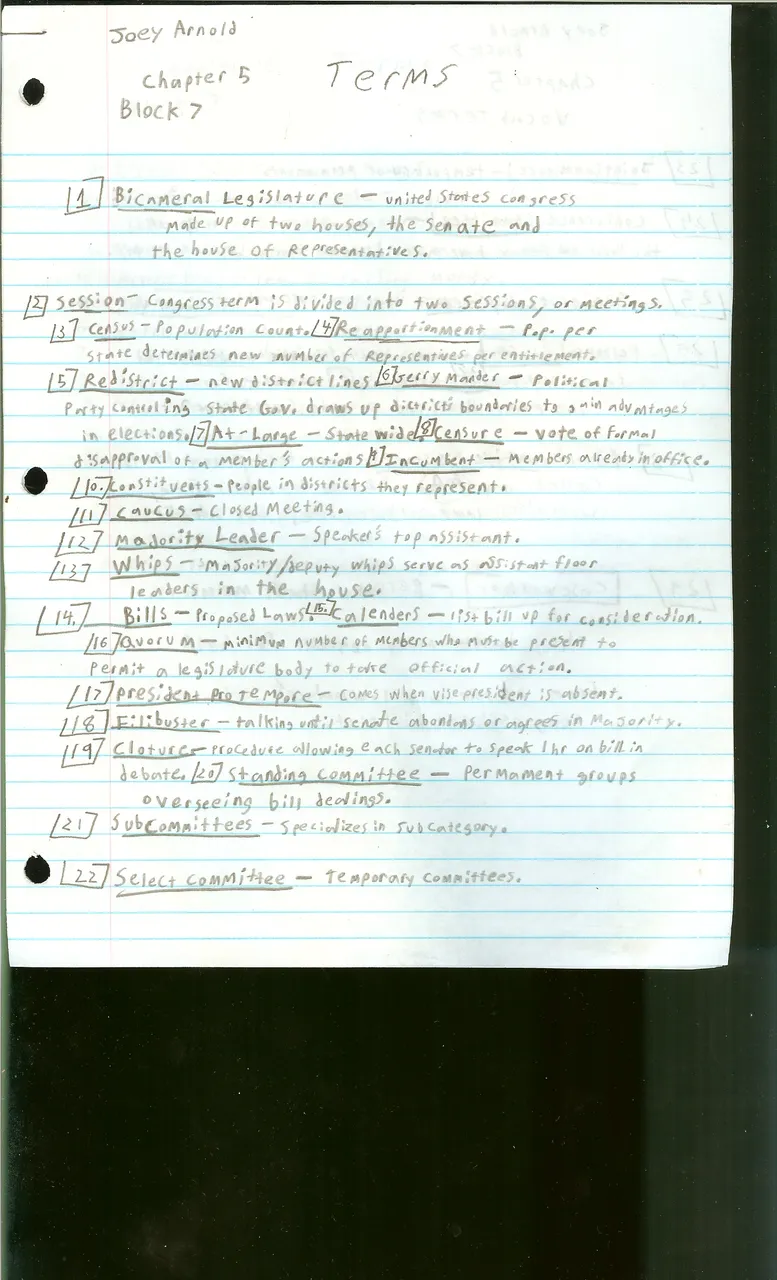 Joey Arnold
Chapter 5 Terms
Block 7
[1] Bicameral Legislature – united States congress
made up of two houses, the Senate and
the house of Representatives.
[2] Session – Congress term is divided into two Sessions, or meetings.
[3] Census – Population Count. [4] Reapportionment – Pop. per
State determines new number of Representives per entitlement.
[5] Redistrict – new district lines [6] Gerry Mander – Political
Party controlling State Gov. draws up districts boundaries to gain advntages
in elections. [7] At-Large – State wide. [8] Censure – vote of formal
disapproval of a member's actions [9] Incumbent – Members already in office.
[10.] Constituents – People in districts they represent.
[11] Caucus – Closed Meeting.
[12] Majority Leader – Speaker's top assistant.
[13] Whips – Majority/deputy whips serve as assistant floor
leaders in the house.
[14.] Bills – Proposed Laws. [15.] Calenders – list bill up for consideration.
[16] Quorum – minimum number of members who must be present to
Permit a legislature body to take official action.
[17] President Pro Tempore – Comes when vise president is absent.
[18] Filibuster – talking until senate abondons or agrees in Majority.
[19] Cloture – procedute allowing each senator to speak 1hr on bill in
debate. [20] Standing Committee – Permament groups
overseeing bill dealings.
[21] SubCommittees – Specializes in Subcategory.
[22] Select Committee – Temporary Committees.